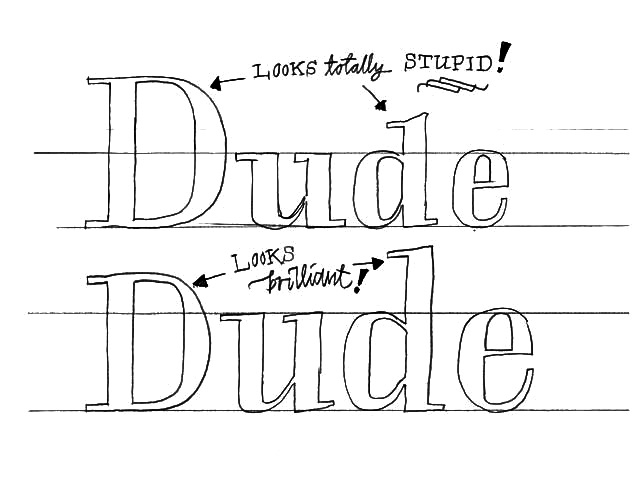 LOOKS totally STUPID!
Dude
LOOKS
brilliant!
Dude